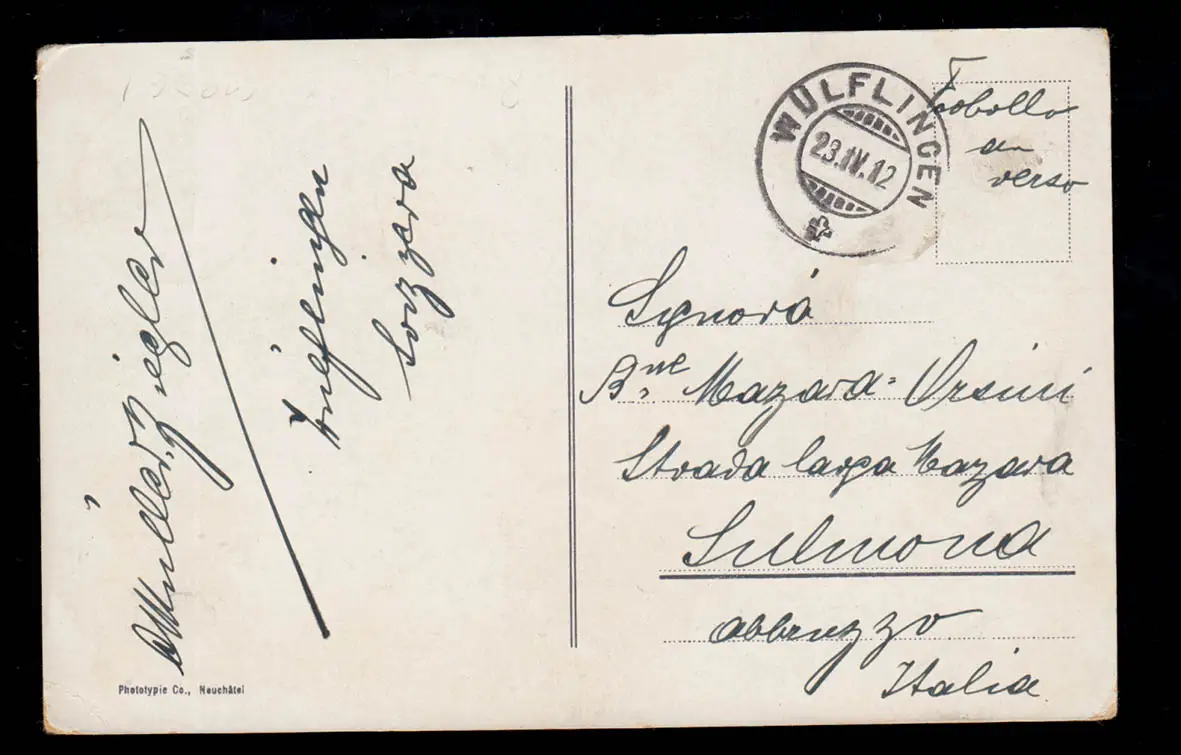 A Müller, Ziegler
Wülflingen
Svizzera
Phototypie Co., Neuchâtel
WÜLFLINGEN
23.IV.12
Frobollo
a
verso
Signora
B.ne Mazara-Orsini
Strada larga Mazara
Sulmona
Abbruzzo
Italia